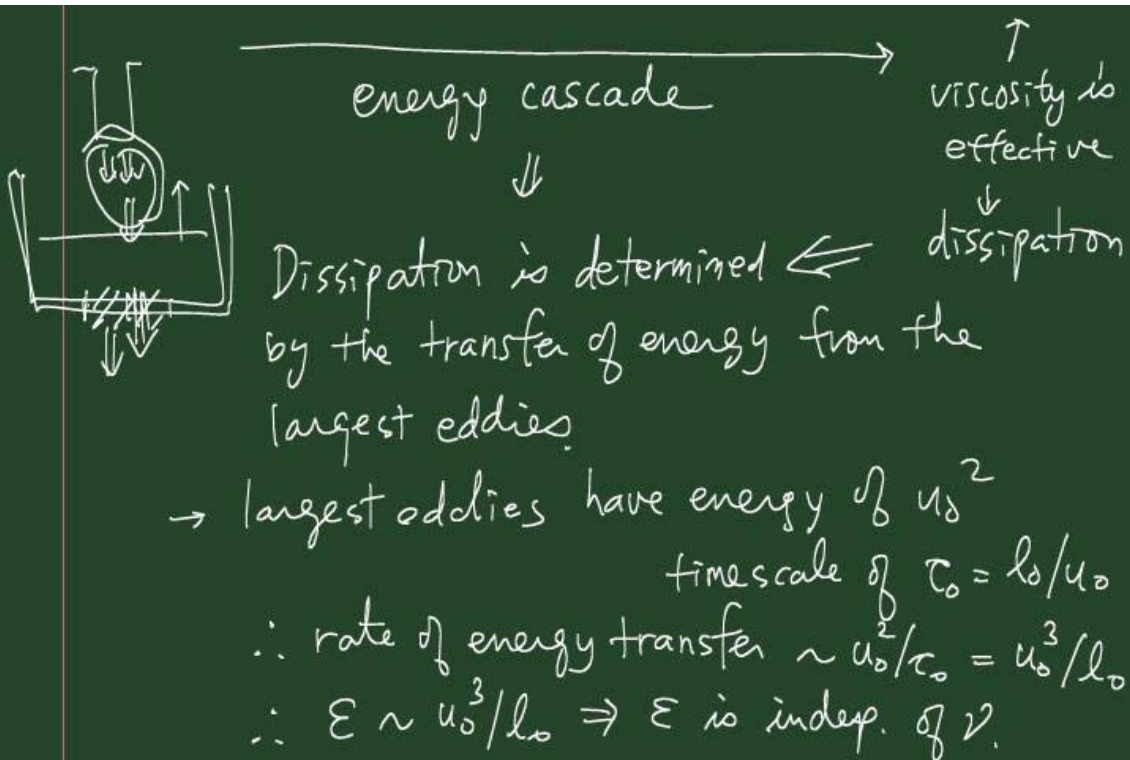 energy cascade
viscosity is
effective
↓
dissipation
⇓
Dissipation is determined ⇐
by the transfer of energy from the
largest eddies.
→ largest eddies have energy of u₀²
timescale of τ₀ = l₀/u₀
∴ rate of energy transfer ~ u₀²/τ₀ = u₀³/l₀
∴ ε ~ u₀³/l₀ ⇒ ε is indep. of ν.